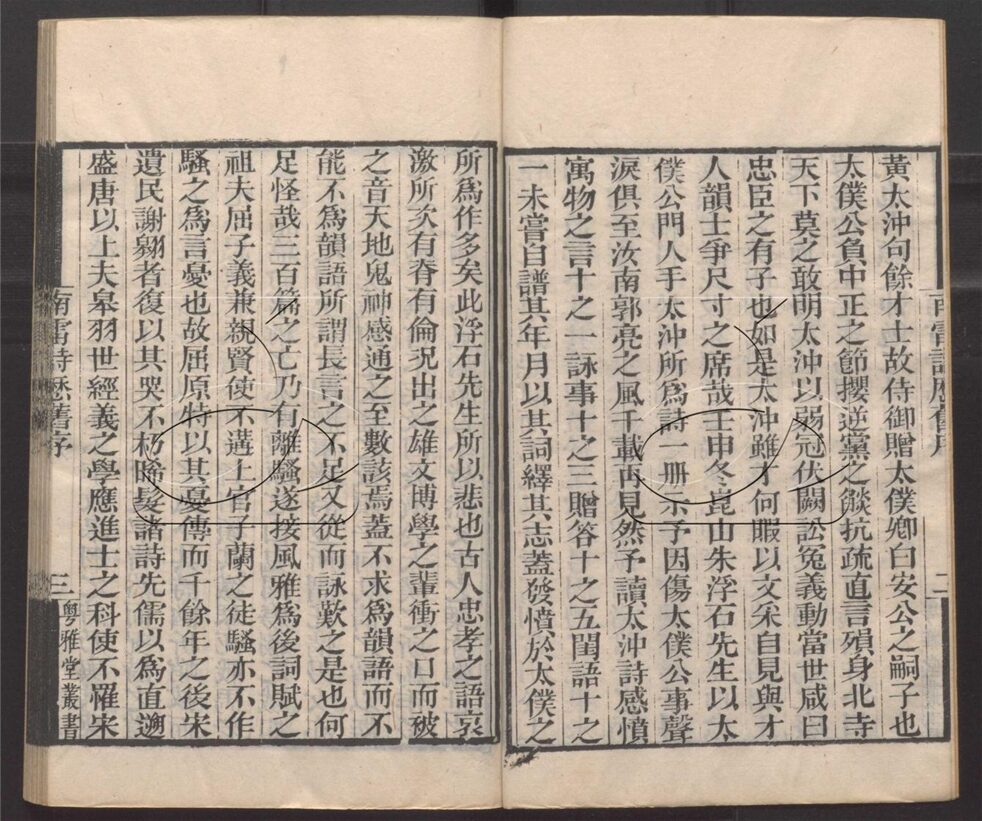 黃太沖句餘才士故侍御贈太僕卿白安公之嗣子也
太僕公負中正之節攖逆黨之燄抗疏直言殞身北寺
天下莫之敢明太沖以弱冠伏闕訟冤義動當世咸曰
忠臣之有子也如是太沖雖才何暇以文采自見與才
人韻士爭尺寸之席哉壬申冬崑山朱浮石先生以太
僕公門人手太沖所爲詩一冊示予因傷太僕公事聲
淚俱至汝南郭亮之風千載再見然予讀太沖詩感憤
寓物之言十之一詠事十之三贈答十之五閨語十之
一未嘗自譜其年月以其詞繹其志蓋發憤於太僕之
南雷詩厯舊序
二
所爲作多矣此浮石先生所以悲也古人忠孝之語哀
激所次有脊有倫況出之雄文博學之輩衝之口而破
之音天地鬼神感通之至數該焉蓋不求爲韻語而不
能不爲韻語所謂長言之不足又從而詠歎之是也何
足怪哉三百篇之亡乃有離騷遂接風雅爲後詞賦之
祖夫屈子義兼親賢使不遘上官子蘭之徒騷亦不作
騷之爲言憂也故屈原特以其憂傳而千餘年之後宋
遺民謝翱者復以其哭不朽晞髮諸詩先儒以爲直遡
盛唐以上夫皋羽世經義之學應進士之科使不罹宋
南雷詩厯舊序
三
粵雅堂叢書